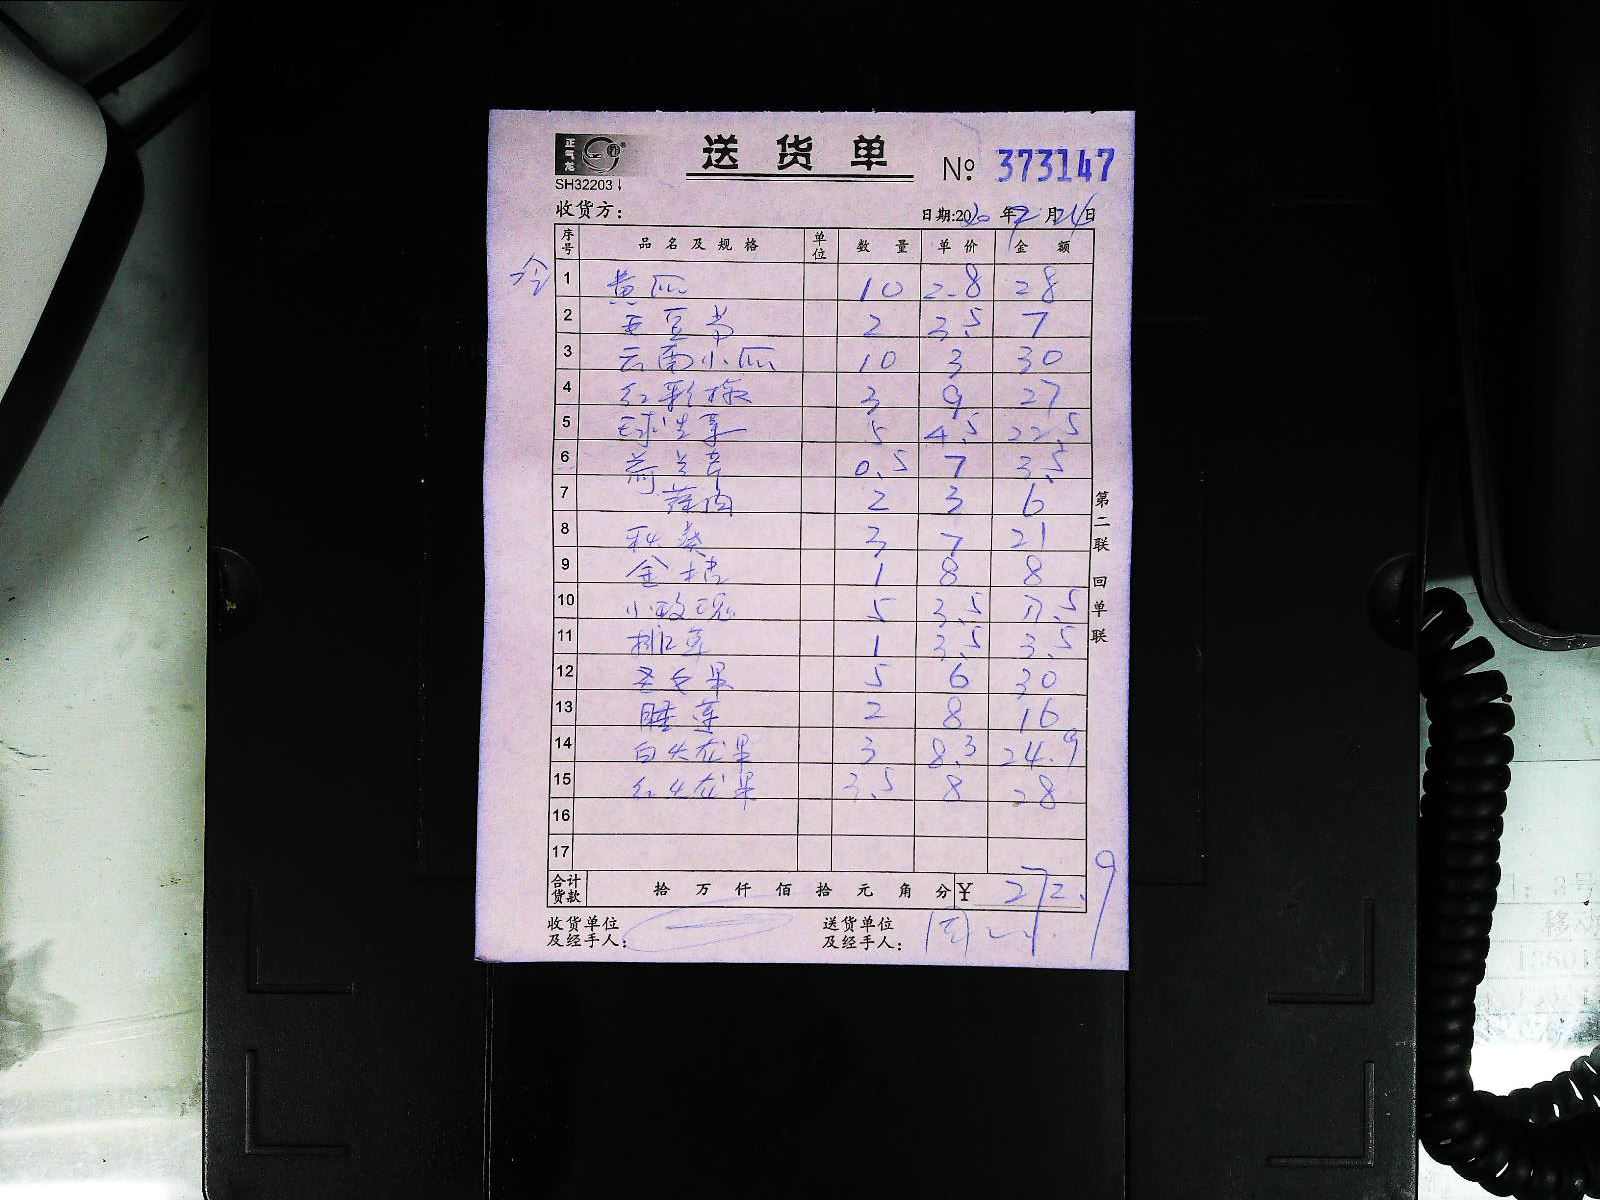 正气龙
送货单
№ 373147
SH32203
收货方:
日期:2020年9月24日
序号 品名及规格 单位 数量 单价 金额
冷
1 黄瓜 10 2.8 28
2 土豆 2 3.5 7
3 云南小瓜 10 3 30
4 红彩椒 3 9 27
5 球生菜 5 4.5 22.5
6 荷兰芹 0.5 7 3.5
7 2 3 6
8 秋葵 3 7 21
9 金桔 1 8 8
10 小玫瑰 5 3.5 17.5
11 排草 1 3.5 3.5
12 圣女果 5 6 30
13 睡莲 2 8 16
14 白火龙果 3 8.3 24.9
15 红火龙果 3.5 8 28
16
17
合计货款 拾万仟佰拾元角分 ¥ 272.9
收货单位及经手人:
送货单位及经手人:
第二联 回单联